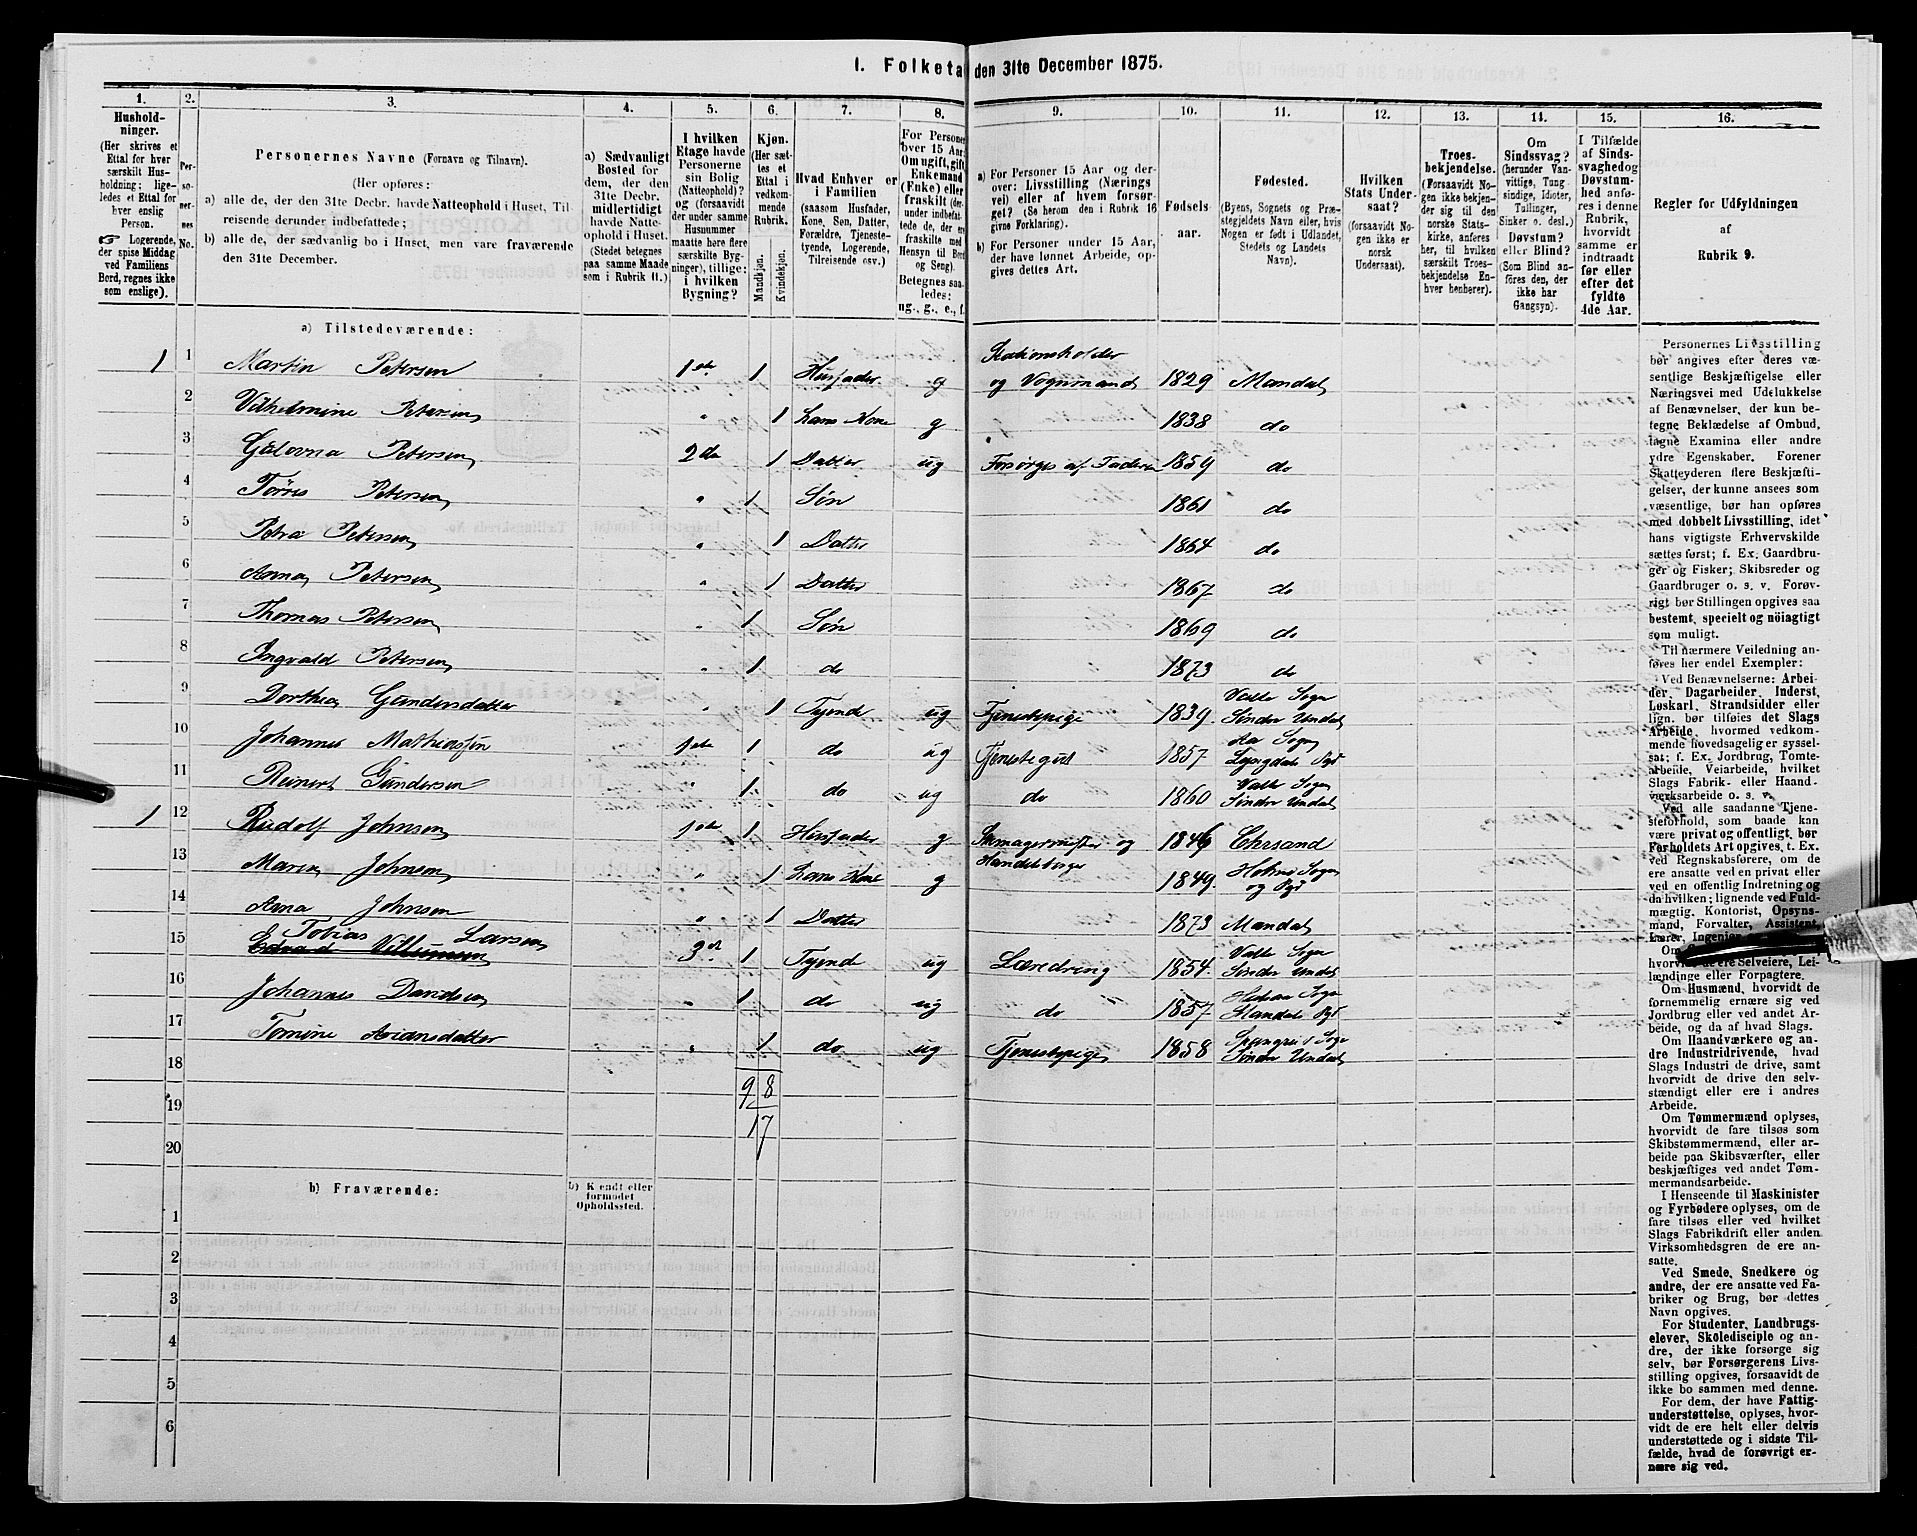 I. Folketa den 31te December 1875.
1. 2. 3. 4. 5. 6. 7. 8. 9. 10. 11. 12. 13. 14. 15. 16.
Hushold-
ninger.
(Her skrives et
Ettal for hver
særskilt Hus-
holdning; lige-
ledes et Ettal for
hver enslig
Person.
☞ Logerende,
der spise Middag
ved Familiens
Bord, regnes ikke
som enslige).
Per-
so-
ner-
nes
No.
Personernes Navne (Fornavn og Tilnavn).
(Her opføres:
a) alle de, der den 31te Decbr. havde Natteophold i Huset, Til-
reisende derunder indbefattede;
b) alle de, der sædvanlig bo i Huset, men vare fraværende
den 31te December.
a) Sædvanligt
Bosted for
dem, der den
31te Decbr.
midlertidigt
havde Natte-
ophold i Huset.
(Stedet betegnes
paa samme Maade
som i Rubrik 11.)
I hvilken
Etage havde
Personerne
sin Bolig
(Natteophold)?
og (forsaavidt
der under samme
Husnummer
maatte høre flere
særskilte Byg-
ninger), tillige:
i hvilken
Bygning?
Kjøn.
(Her sæt-
tes et
Ettal i
vedkom-
mende
Rubrik.
Mandkjøn.
Kvindekjøn.
Hvad Enhver er
i Familien
(saasom Husfader,
Kone, Søn, Datter,
Forældre, Tjeneste-
tyende, Logerende,
Tilreisende osv.)
For Personer
over 15 Aar:
Om ugift, gift,
Enkemand
(Enke) eller
fraskilt (der-
under indbefat-
tede de, der ere
fraskilte med
Hensyn til Bord
og Seng).
Betegnes saa-
ledes:
ug., g., e., f.
a) For Personer 15 Aar og der-
over: Livsstilling (Nærings
vei) eller af hvem forsør-
get? (Se herom den i Rubrik 16
givne Forklaring).
b) For Personer under 15 Aar,
der have lønnet Arbeide, op-
gives dettes Art.
Fødsels-
aar.
Fødested.
(Byens, Sognets og Præ-
stegjeldets Navn eller, hvis
Nogen er født i Udlandet,
Stedets og Landets
Navn).
Hvilken
Stats Under-
saat?
(forsaavidt No-
gen ikke er
norsk
Undersaat).
Troes-
bekjendelse.
(Forsaavidt No-
gen ikke bekjen-
der sig til den
norske Stats-
kirke, anføres
her, til hvilken
særskilt Troes-
bekjendelse En-
hver henhører).
Om
Sindssvag?
(herunder Van-
vittige, Tung
sindige, Idioter,
Tullinger,
Sinker o. desl.)
Døvstum?
eller Blind?
(Som Blind an-
føres den, der
ikke har
Gangsyn).
I Tilfælde
af Sinds-
svaghed og
Døvstum-
hed anfø-
res i denne
Rubrik,
hvorvidt
samme er
indtraadt
før eller
efter det
fyldte
4de Aar.
Regler for Udfyldningen
af
Rubrik 9.
a) Tilstedeværende:
1 1 Martin Petersen 1ste 1 Husfader g Stationsholder
og Vognmand 1829 Mandal
2 Vilhelmine Petersen " 1 hans Kone g 1838 do
3 Petersen 2den 1 Datter ug Forsørges af Faderen 1859 do
4 Petersen " 1 Søn 1861 do
5 Petra Petersen " 1 Datter 1864 do
6 Anna Petersen " 1 Datter 1867 do
7 Thomas Petersen " 1 Søn 1869 do
8 Ingvald Petersen " 1 do 1873 do
9 Dorthea Gundersdatter " 1 Tyende ug Tjenestepige 1839 Valle Sogn
Søndre Undal
10 Johannes Mathiassen 1ste 1 do ug Tjenestegut 1857 Aa Sogn
Lyngdal Pgt
11 Reinert Gundersen " 1 do ug do 1860 Valle Sogn
Søndre Undal
1 12 Rudolf Johnsen 1ste 1 Husfader g Skomagermester og
Handelsborger 1846 Chrsand
13 Maren Johnsen " 1 hans Kone g 1849 Holme Sogn
og Pgt
14 Anna Johnsen " 1 Datter 1873 Mandal
15 Tobias Larsen
3d 1 Tyende ug Læredreng 1854 Valle Sogn
Søndre Undal
16 Johannes Davidsen " 1 do ug do 1857 Sogn
Mandal Pgt
17 Tomine Arians­datter " 1 do ug Tjenestepige 1858 Spangreid Sogn
Søndre Undal
18
9 8
19
17
20
b) Fraværende:
b) Kjendt eller
formodet
Opholdssted.
1
2
3
4
5
6
Personernes Livsstilling
bør angives efter deres væ-
sentlige Beskjæftigelse eller
Næringsvei med Udelukkelse
af Benævnelser, der kun be-
tegne Beklædelse af Ombud,
tagne Examina eller andre
ydre Egenskaber. Forener
Skatteyderen flere Beskjæfti-
gelser, der kunne ansees som
væsentlige, bør han opføres
med dobbelt Livsstilling, idet
hans vigtigste Erhvervskilde
sættes først; f. Ex. Gaardbru-
ger og Fisker; Skibsreder og
Gaardbruger o. s. v. Forøv-
rigt bør Stillingen opgives saa
bestemt, specielt og nøiagtigt
som muligt.
Til nærmere Veiledning an-
føres her endel Exempler:
Ved Benævnelserne: Arbei-
der, Dagarbeider, Inderst,
Løskarl, Strandsidder eller
lign. bør tilføies det Slags
Arbeide, hvormed vedkom-
mende hovedsagelig er syssel-
sat; f. Ex. Jordbrug, Tomte-
arbeide, Veiarbeide, hvilket
Slags Fabrik- eller Haand
værksarbeide o. s. v.
Ved alle saadanne Tjene-
steforhold, som baade kan
være privat og offentligt, bør
Forholdets Art opgives, t. Ex.
ved Regnskabsførere, om de
ere ansatte ved en privat eller
ved en offentlig Indretning og
da hvilken; lignende ved Fuld-
mægtig, Kontorist, Opsyns-
mand, Forvalter, Assistent,
Lærer, Ingeniør
Om
hvorvidt de ere Selveiere, Lei-
lændinge eller Forpagtere.
Om Husmænd, hvorvidt de
fornemmelig ernære sig ved
Jordbrug eller ved andet Ar-
beide, og da af hvad Slags.
Om Haandværkere og an-
dre Industridrivende, hvad
Slags Industri de drive, samt
hvorvidt de drive den selv-
stændigt eller ere i andres
Arbeide.
Om Tømmermænd oplyses,
hvorvidt de fare tilsøs som
Skibstømmermænd, eller ar-
beide paa Skibsværfter, eller
beskjæftiges ved andet Tøm-
mermandsarbeide.
I Henseende til Maskinister
og Fyrbødere oplyses, om de
fare tilsøs eller ved hvilket
Slags Fabrikdrift eller anden
Virksomhedsgren de ere an-
satte.
Ved Smede, Snedkere og
andre, der ere ansatte ved Fa-
briker og Brug, bør dettes
Navn opgives.
For Studenter, Landbrugs-
elever, Skoledisciple og an-
dre, der ikke forsørge sig
selv, bør Forsørgerens Livs-
stilling opgives, forsaavidt de
ikke bo sammen med denne.
For dem, der have Fattig-
understøttelse, oplyses, hvor-
vidt de ere helt eller delvis
understøttede og i sidste Til-
fælde, hvad de forøvrigt er-
nære sig ved.